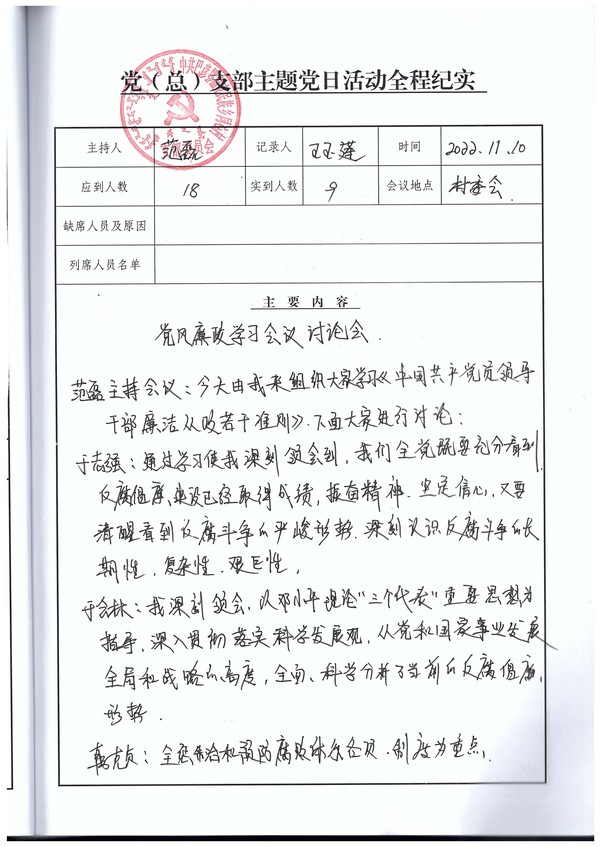 党（总）支部主题党日活动全程纪实
主持人 范磊 记录人 王玉莲 时间 2022.11.10
应到人数 18 实到人数 9 会议地点 村委会
缺席人员及原因
列席人员名单
主要内容
党风廉政学习会议讨论会.
范磊主持会议：今天由我来组织大家学习《中国共产党员领导
干部廉洁从政若干准则》.下面大家进行讨论：
于志强：通过学习使我深刻领会到，我们全党既要充分看到
反腐倡廉建设已经取得成绩，振奋精神.坚定信心，又要
清醒看到反腐斗争的严峻形势.深刻认识反腐斗争的长
期性，复杂性.艰巨性，
于会林：我深刻领会，以邓小平理论“三个代表”重要思想为
指导，深入贯彻落实科学发展观，从党和国家事业发展
全局和战略的高度，全面、科学分析了当前的反腐倡廉
形势.
贞：全惩治和预防腐败体系各项.制度为重点，